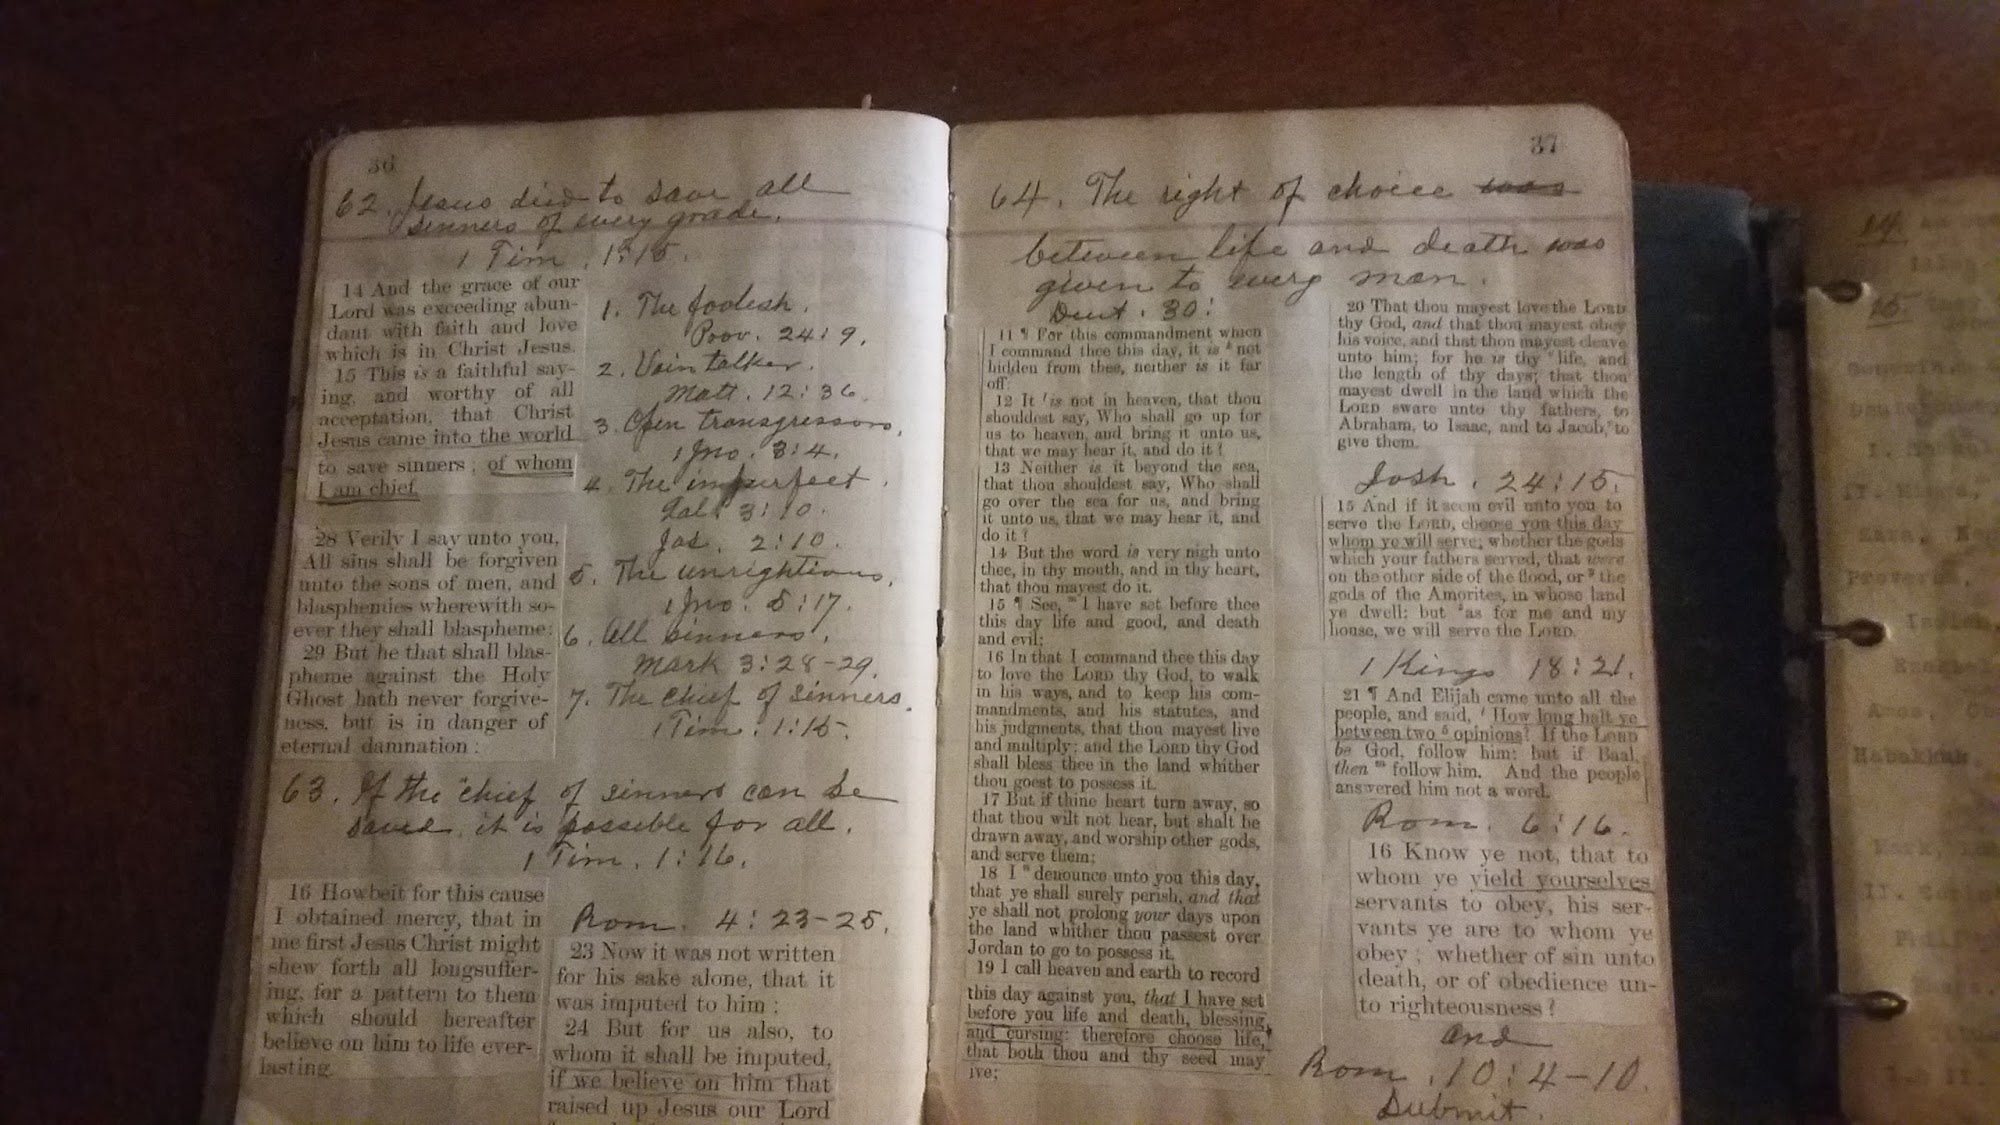 36
62. Jesus died to save all
sinners of every grade.
1 Tim. 1:15.
14 And the grace of our
Lord was exceeding abun-
dant with faith and love
which is in Christ Jesus.
15 This is a faithful say-
ing, and worthy of all
acceptation, that Christ
Jesus came into the world
to save sinners; of whom
I am chief.
28 Verily I say unto you,
All sins shall be forgiven
unto the sons of men, and
blasphemies wherewith so-
ever they shall blaspheme:
29 But he that shall blas-
pheme against the Holy
Ghost hath never forgive-
ness, but is in danger of
eternal damnation:
1. The foolish.
Prov. 24:9.
2. Vain talker.
Matt. 12:36.
3. Open transgressors.
1 Jno. 3:4.
4. The imperfect.
Gal. 3:10.
Jas. 2:10.
5. The unrightious.
1 Jno. 5:17.
6. All sinners.
Mark 3:28-29.
7. The chief of sinners.
1 Tim. 1:15.
63. If the "chief of sinners can be
saved, it is possible for all.
1 Tim. 1:16.
16 Howbeit for this cause
I obtained mercy, that in
me first Jesus Christ might
shew forth all longsuffer-
ing, for a pattern to them
which should hereafter
believe on him to life ever-
lasting.
Rom. 4:23-25.
23 Now it was not written
for his sake alone, that it
was imputed to him;
24 But for us also, to
whom it shall be imputed,
if we believe on him that
raised up Jesus our Lord
37
64. The right of choice was
between life and death was
given to every man.
Deut. 30:
11 ¶ For this commandment which
I command thee this day, it is not
hidden from thee, neither is it far
off.
12 It is not in heaven, that thou
shouldest say, Who shall go up for
us to heaven, and bring it unto us,
that we may hear it, and do it?
13 Neither is it beyond the sea,
that thou shouldest say, Who shall
go over the sea for us, and bring
it unto us, that we may hear it, and
do it?
14 But the word is very nigh unto
thee, in thy mouth, and in thy heart,
that thou mayest do it.
15 ¶ See, I have set before thee
this day life and good, and death
and evil;
16 In that I command thee this day
to love the LORD thy God, to walk
in his ways, and to keep his com-
mandments, and his statutes, and
his judgments, that thou mayest live
and multiply: and the LORD thy God
shall bless thee in the land whither
thou goest to possess it.
17 But if thine heart turn away, so
that thou wilt not hear, but shalt be
drawn away, and worship other gods,
and serve them;
18 I denounce unto you this day,
that ye shall surely perish, and that
ye shall not prolong your days upon
the land whither thou passest over
Jordan to go to possess it.
19 I call heaven and earth to record
this day against you, that I have set
before you life and death, blessing
and cursing: therefore choose life,
that both thou and thy seed may
ive;
20 That thou mayest love the LORD
thy God, and that thou mayest obey
his voice, and that thou mayest cleave
unto him; for he is thy life, and
the length of thy days; that thou
mayest dwell in the land which the
LORD sware unto thy fathers, to
Abraham, to Isaac, and to Jacob, to
give them.
Josh. 24:15.
15 And if it seem evil unto you to
serve the LORD, choose you this day
whom ye will serve; whether the gods
which your fathers served, that were
on the other side of the flood, or the
gods of the Amorites, in whose land
ye dwell: but as for me and my
house, we will serve the LORD.
1 Kings 18:21.
21 ¶ And Elijah came unto all the
people, and said, How long halt ye
between two opinions? If the LORD
be God, follow him: but if Baal,
then follow him. And the people
answered him not a word.
Rom. 6:16.
16 Know ye not, that to
whom ye yield yourselves
servants to obey, his ser-
vants ye are to whom ye
obey; whether of sin unto
death, or of obedience un-
to righteousness?
and
Rom. 10:4-10.
Submit.
14.
15.
Proverbs,
Habakkuk,